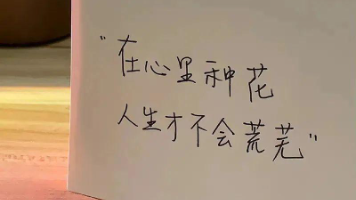 “在心里种花
人生才不会荒芜”